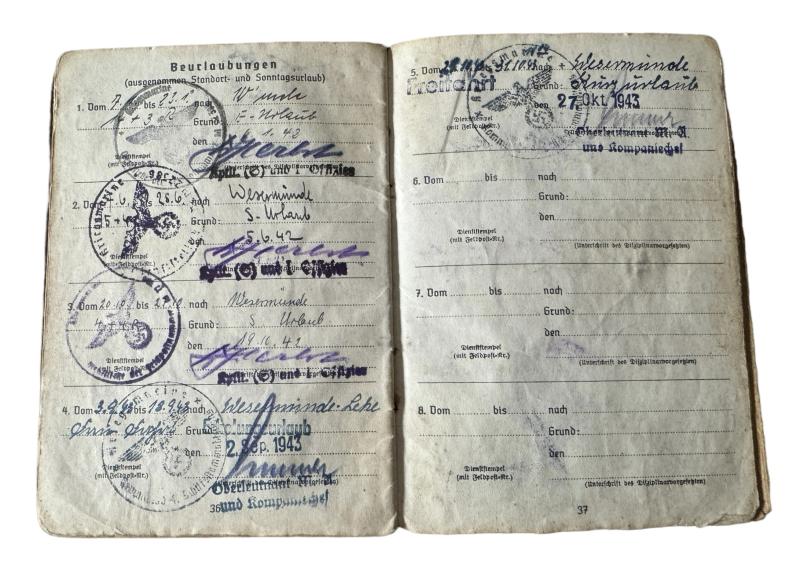 Beurlaubungen
(ausgenommen Standort- und Sonntagsurlaub)
1. Vom 7. bis 23.1. nach W'münde
Grund: E-Urlaub
den 1.42
Dienststempel
(mit Feldpost-Nr.)
Kptlt. (S) und I. Offizier
2. Vom bis 28.6. nach Wesermünde
Grund: S-Urlaub
den 5.6.42
Dienststempel
(mit Feldpost-Nr.)
Kptlt. (S) und I. Offizier
3. Vom 20.10. bis 27.10. nach Wesermünde
Grund: S Urlaub
den 19.10.42
Dienststempel
(mit Feldpost-Nr.)
Kptlt. (S) und I. Offizier
4. Vom 3.9.43 bis 19.9.43 nach Wesermünde-Lehe
Grund: Erholungsurlaub
den 2. Sep. 1943
Dienststempel
(mit Feldpost-Nr.)
Oberleutnant M.A.
und Kompaniechef
36
Kriegsmarine
5. Vom 28.10.43 bis 31.10.43 nach Wesermünde
Freifahrt
Grund: Kurzurlaub
den 27. Okt. 1943
Dienststempel
(mit Feldpost-Nr.)
Oberleutnant M.A.
und Kompaniechef
6. Vom bis nach
Grund:
den
Dienststempel
(mit Feldpost-Nr.)
(Unterschrift des Disziplinarvorgesetzten)
7. Vom bis nach
Grund:
den
Dienststempel
(mit Feldpost-Nr.)
(Unterschrift des Disziplinarvorgesetzten)
8. Vom bis nach
Grund:
den
Dienststempel
(mit Feldpost-Nr.)
(Unterschrift des Disziplinarvorgesetzten)
37